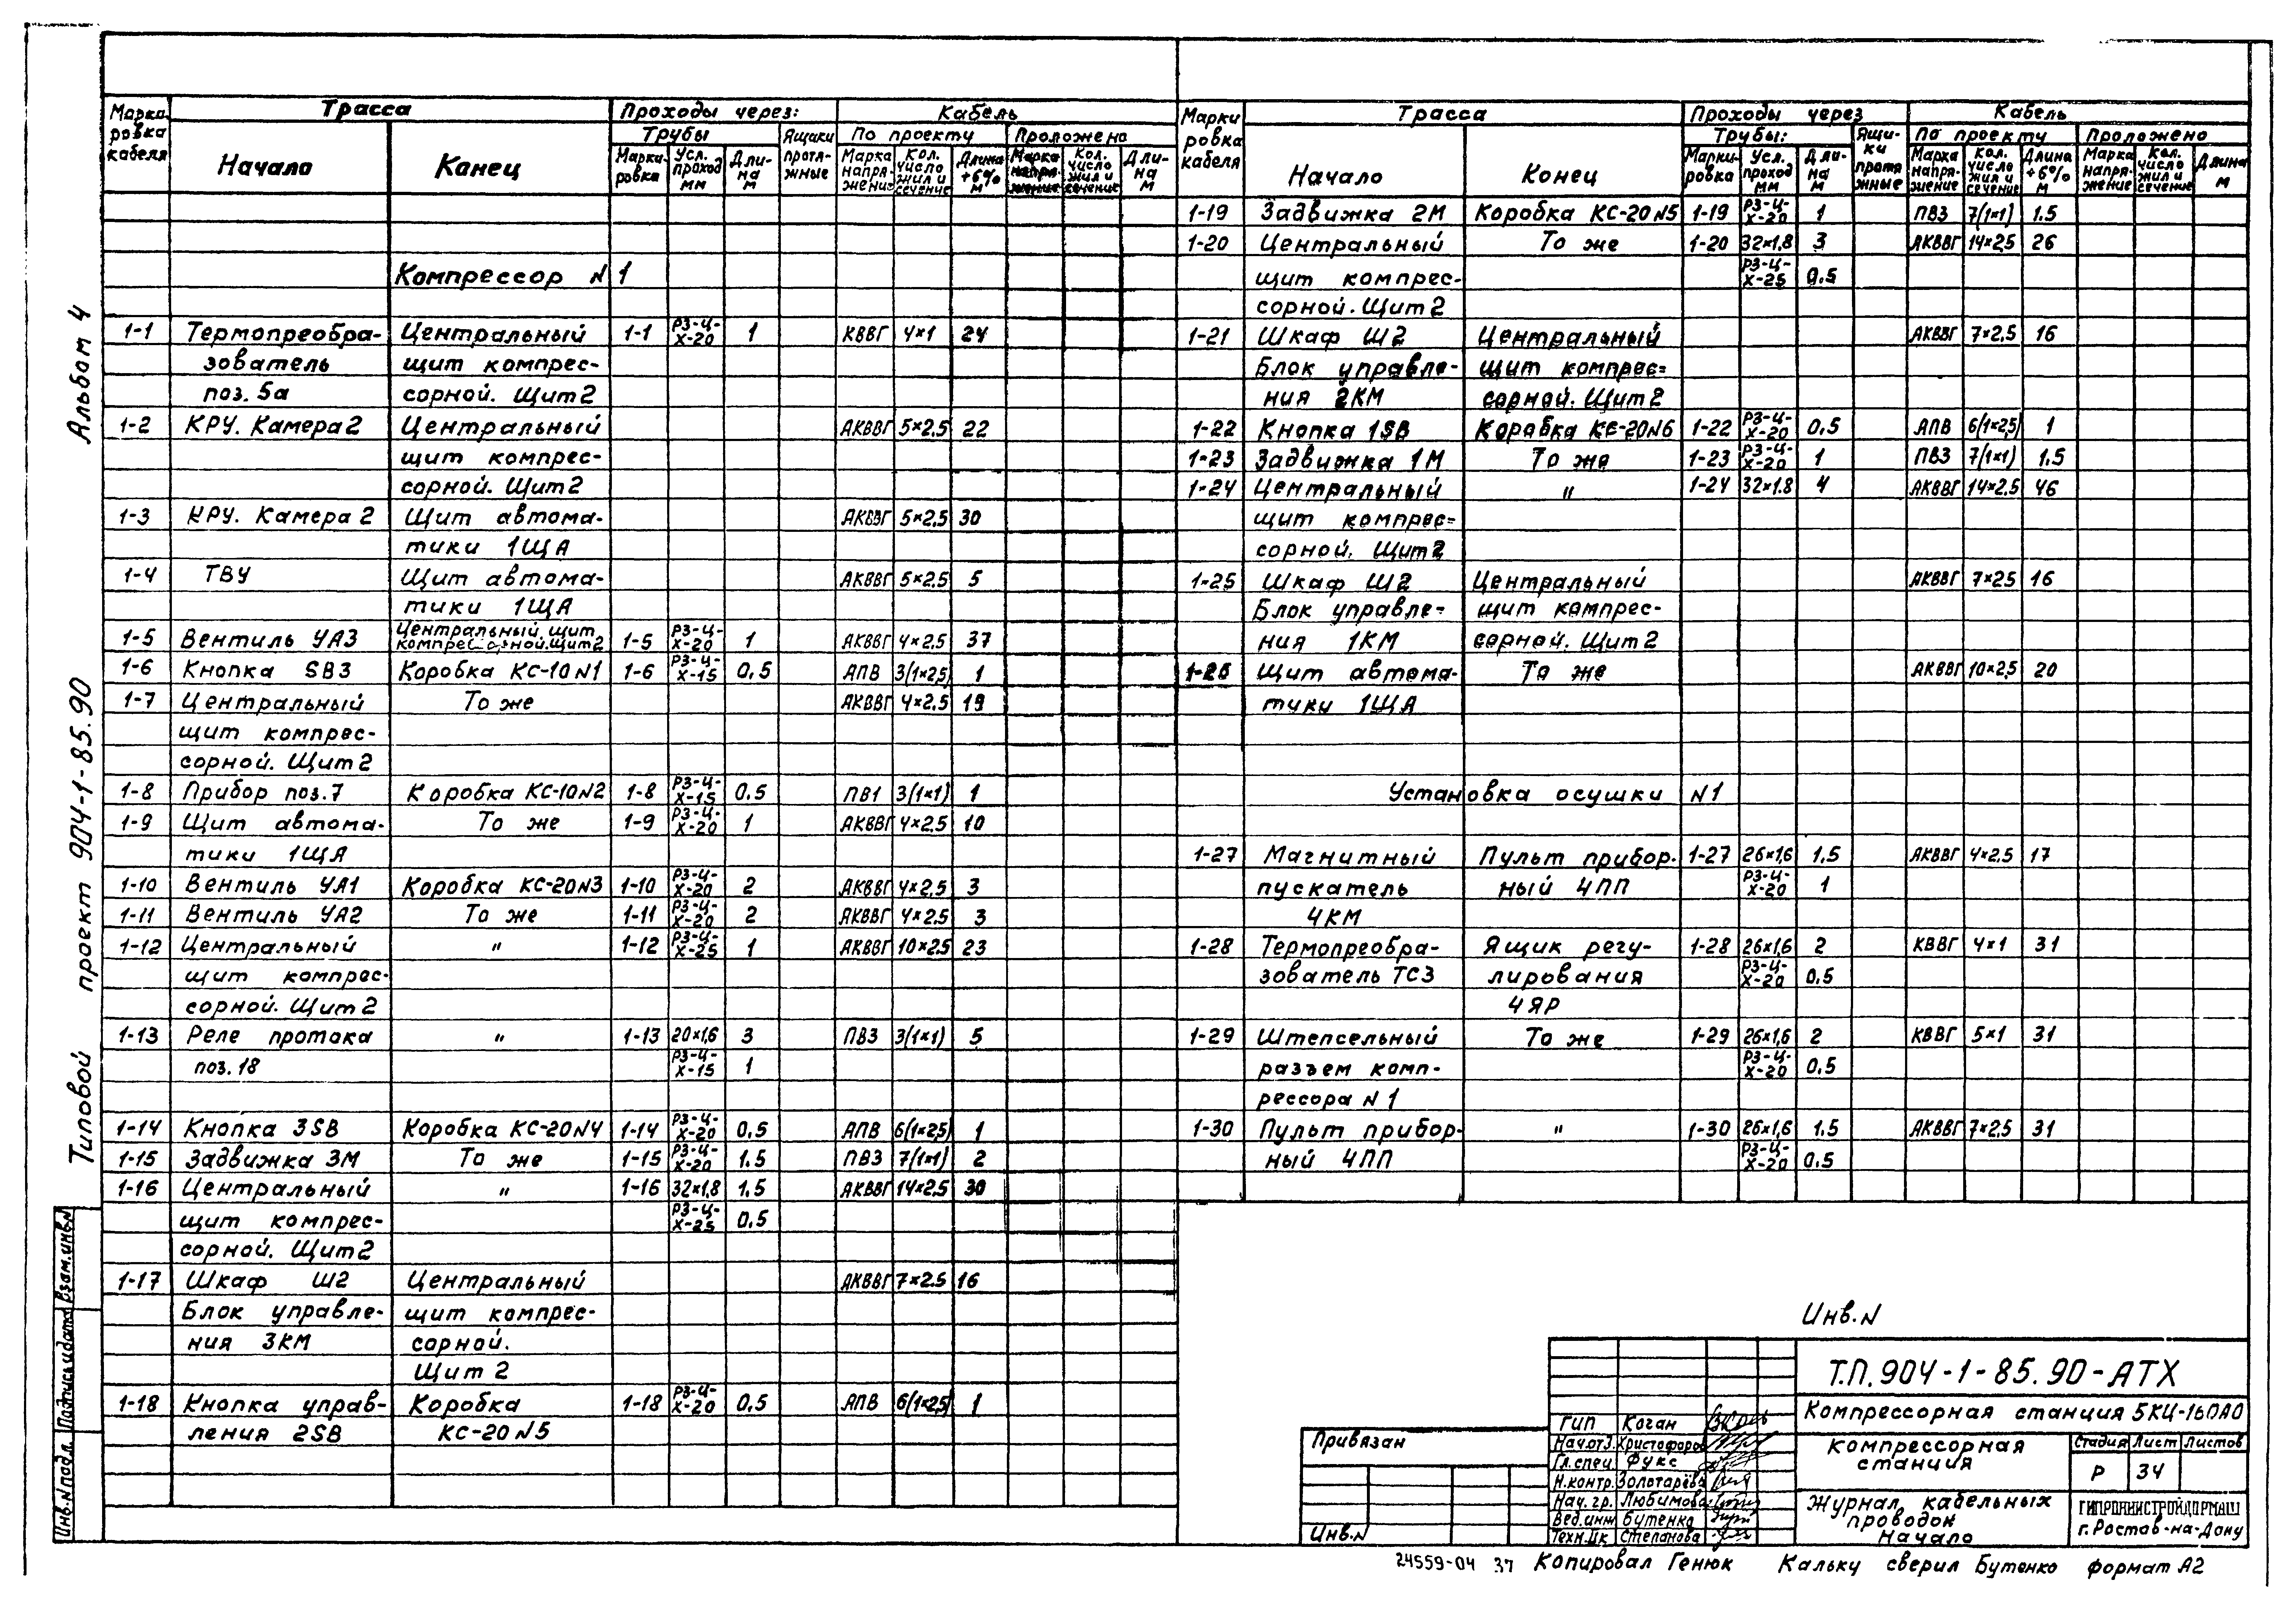 Альбом 4
Типовой проект 904-1-85.90
Взам.инв.N
Подпись и дата
Инв.N подл.
Маркировка кабеля | Трасса | Проходы через: | Кабель
Начало | Конец | Трубы | Ящики протяжные | По проекту | Проложено
Маркировка | Усл. проход мм | Длина м | Марка напряжение | Кол. число жил и сечение | Длина +6% м | Марка напряжение | Кол. число жил и сечение | Длина м
Компрессор N 1
1-1 Термопреобра- Центральный 1-1 РЗ-Ц-Х-20 1 КВВГ 4×1 24
зователь щит компрес-
поз. 5а сорной. Щит 2
1-2 КРУ. Камера 2 Центральный АКВВГ 5×2,5 22
щит компрес-
сорной. Щит 2
1-3 КРУ. Камера 2 Щит автома- АКВВГ 5×2,5 30
тики 1ЩА
1-4 ТВУ Щит автома- АКВВГ 5×2,5 5
тики 1ЩА
1-5 Вентиль УА3 Центральный щит компрессорной. Щит 2 1-5 РЗ-Ц-Х-20 1 АКВВГ 4×2,5 37
1-6 Кнопка SB3 Коробка КС-10 N1 1-6 РЗ-Ц-Х-15 0,5 АПВ 3(1×2,5) 1
1-7 Центральный То же АКВВГ 4×2,5 19
щит компрес-
сорной. Щит 2
1-8 Прибор поз. 7 Коробка КС-10 N2 1-8 РЗ-Ц-Х-15 0,5 ПВ1 3(1×1) 1
1-9 Щит автома- То же 1-9 РЗ-Ц-Х-20 1 АКВВГ 4×2,5 10
тики 1ЩА
1-10 Вентиль УА1 Коробка КС-20 N3 1-10 РЗ-Ц-Х-20 2 АКВВГ 4×2,5 3
1-11 Вентиль УА2 То же 1-11 РЗ-Ц-Х-20 2 АКВВГ 4×2,5 3
1-12 Центральный " 1-12 РЗ-Ц-Х-25 1 АКВВГ 10×2,5 23
щит компрес-
сорной. Щит 2
1-13 Реле протока " 1-13 20×1,6 3 ПВ3 3(1×1) 5
поз. 18 РЗ-Ц-Х-15 1
1-14 Кнопка 3SB Коробка КС-20 N4 1-14 РЗ-Ц-Х-20 0,5 АПВ 6(1×2,5) 1
1-15 Задвижка 3М То же 1-15 РЗ-Ц-Х-20 1,5 ПВ3 7(1×1) 2
1-16 Центральный " 1-16 32×1,8 1,5 АКВВГ 14×2,5 30
щит компрес- РЗ-Ц-Х-25 0,5
сорной. Щит 2
1-17 Шкаф Ш2 Центральный АКВВГ 7×2,5 16
Блок управле- щит компрес-
ния 3КМ сорной.
Щит 2
1-18 Кнопка управ- Коробка 1-18 РЗ-Ц-Х-20 0,5 АПВ 6(1×2,5) 1
ления 2SB КС-20 N5
Маркировка кабеля | Трасса | Проходы через | Кабель
Начало | Конец | Трубы: | Ящики протяжные | По проекту | Проложено
Маркировка | Усл. проход мм | Длина м | Марка напряжение | Кол. число жил и сечение | Длина +6% м | Марка напряжение | Кол. число жил и сечение | Длина м
1-19 Задвижка 2М Коробка КС-20 N5 1-19 РЗ-Ц-Х-20 1 ПВ3 7(1×1) 1.5
1-20 Центральный То же 1-20 32×1,8 3 АКВВГ 14×2,5 26
щит компрес- РЗ-Ц-Х-25 0,5
сорной. Щит 2
1-21 Шкаф Ш2 Центральный АКВВГ 7×2,5 16
Блок управле- щит компрес-
ния 2КМ сорной. Щит 2
1-22 Кнопка 1SB Коробка КС-20 N6 1-22 РЗ-Ц-Х-20 0,5 АПВ 6(1×2,5) 1
1-23 Задвижка 1М То же 1-23 РЗ-Ц-Х-20 1 ПВ3 7(1×1) 1.5
1-24 Центральный " 1-24 32×1.8 4 АКВВГ 14×2,5 46
щит компрес-
сорной. Щит 2
1-25 Шкаф Ш2 Центральный АКВВГ 7×2,5 16
Блок управле- щит компрес-
ния 1КМ сорной. Щит 2
1-26 Щит автома- То же АКВВГ 10×2,5 20
тики 1ЩА
Установка осушки N1
1-27 Магнитный Пульт прибор- 1-27 26×1,6 1,5 АКВВГ 4×2,5 17
пускатель ный 4ПП РЗ-Ц-Х-20 1
4КМ
1-28 Термопреобра- Ящик регу- 1-28 26×1,6 2 КВВГ 4×1 31
зователь ТС3 лирования РЗ-Ц-Х-20 0,5
4ЯР
1-29 Штепсельный То же 1-29 26×1,6 2 КВВГ 5×1 31
разъем комп- РЗ-Ц-Х-20 0,5
рессора N 1
1-30 Пульт прибор- " 1-30 26×1,6 1.5 АКВВГ 7×2,5 31
ный 4ПП РЗ-Ц-Х-20 0,5
Инв.N
Т.П. 904-1-85.90-АТХ
Компрессорная станция 5КЦ-160А0
ГИП Коган
Нач.отд. Христофоров
Гл.спец Фукс
Н.контр. Золотарёва
Нач. гр. Любимова
Вед.инж Бутенко
Техн.IIк Степанова
Компрессорная станция
Стадия Лист Листов
Р 34
Журнал кабельных проводок
Начало
ГИПРОНИИСТРОЙДОРМАШ
г. Ростов-на-Дону
Привязан
Инв.N
24559-04 37 Копировал Генюк Кальку сверил Бутенко формат А2